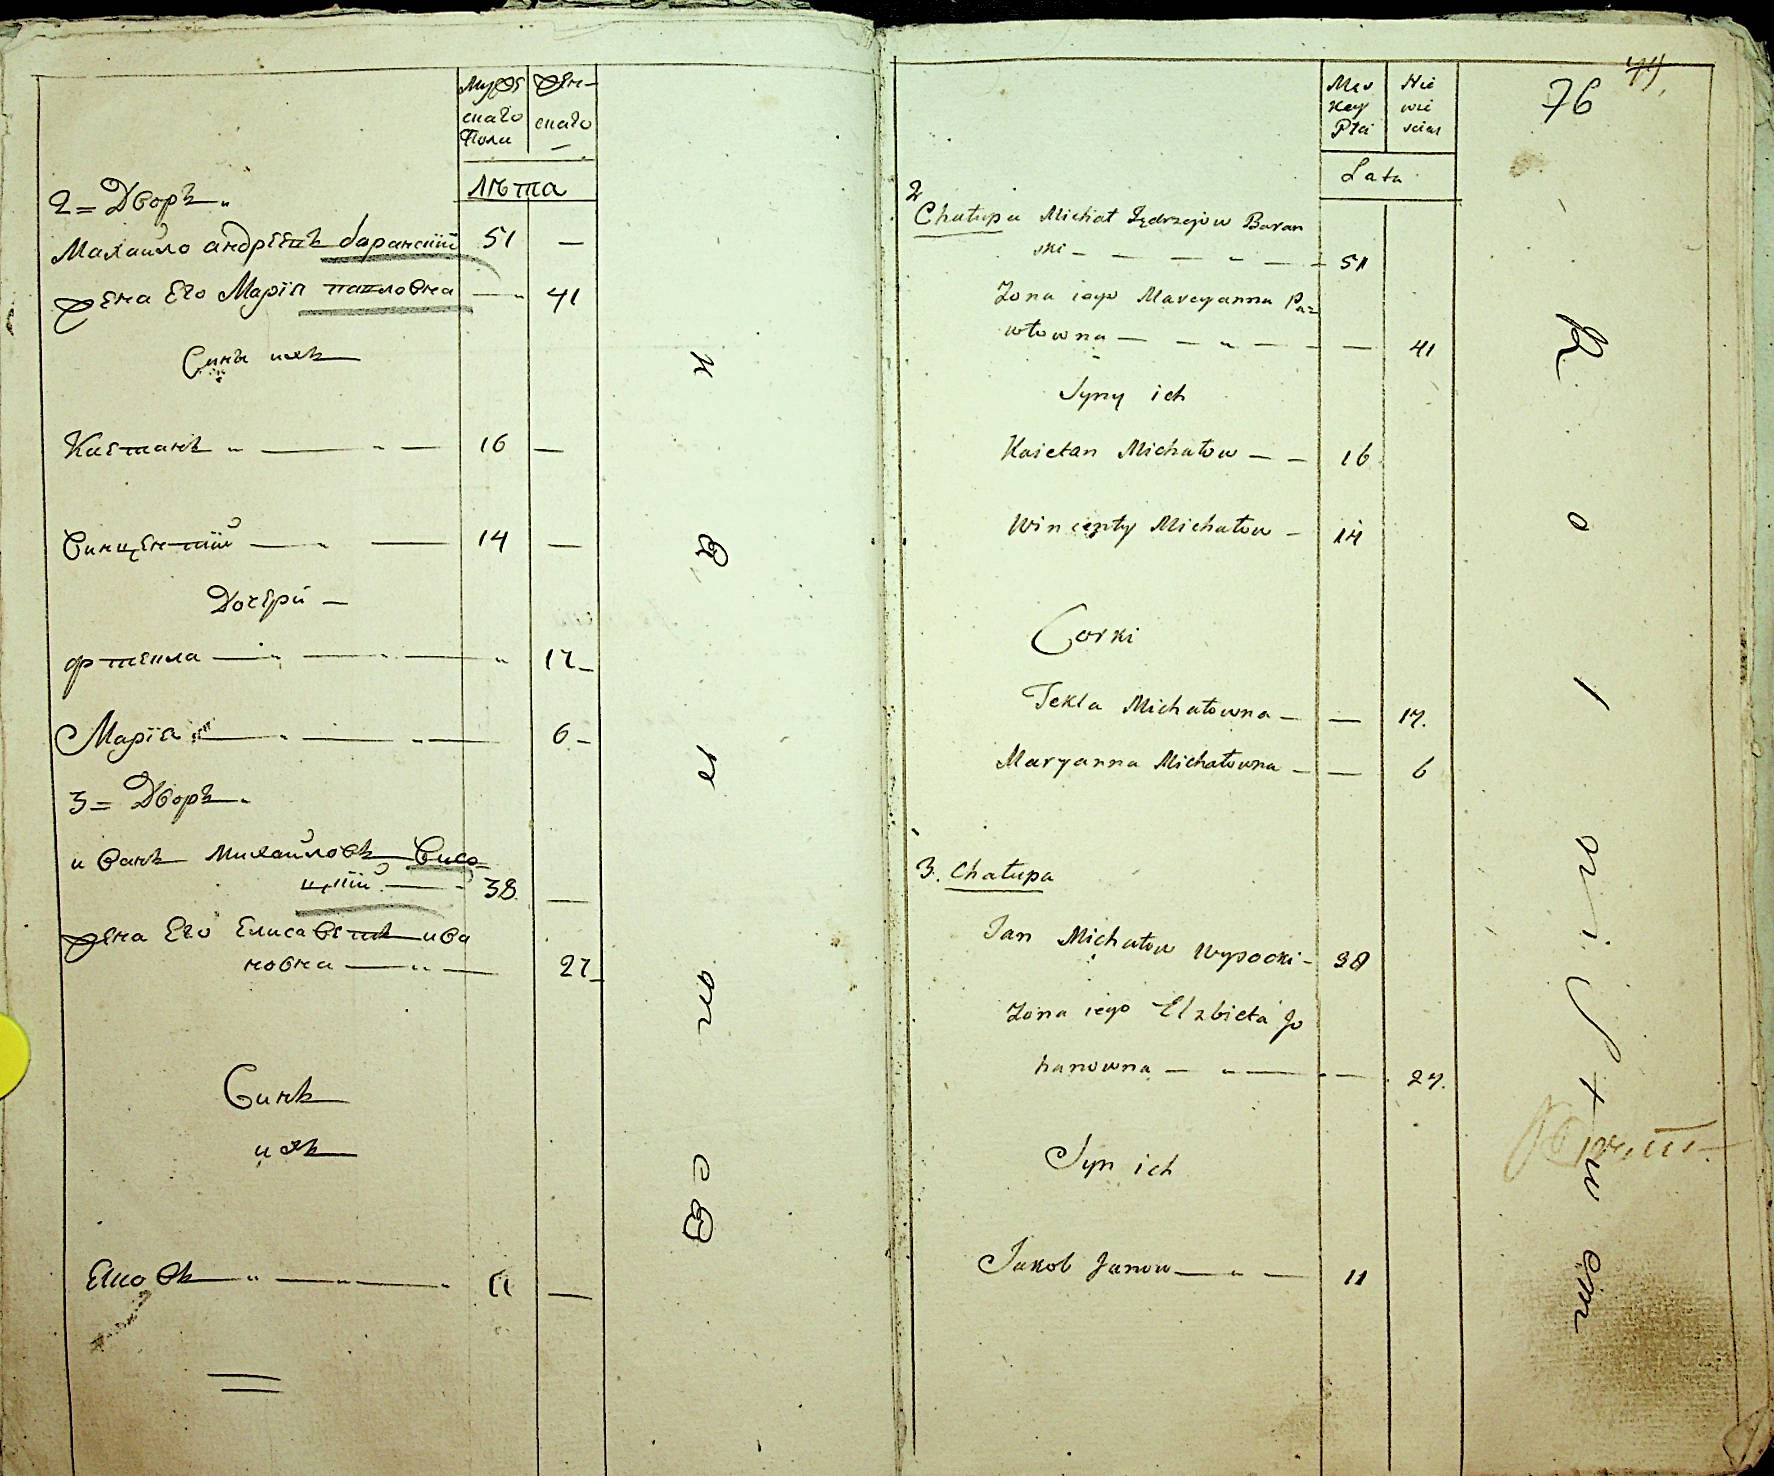 Мужескаго Полu
Женскаго
Лѣта
2= Дворъ
Михайло андреевъ баранскiй 51 —
жена Его Марiя павловна — 41
Сины ихъ
Каетанъ 16 —
Винцентiй 14 —
Дочери —
фтекла 17
Марiа 6
3= Дворъ
иванъ Михайловъ Висо=
цкiй 38 —
жена Его Елисаветъ ива
новна 27
Синъ
ихъ
Яковъ 11 —
Męz
key
Płci
Nie
wie
sciey
76
Lata
2
Chałupa Michał Jędrzejów Baran
ski — 51
Zona iego Maryanna Pa=
włowna — 41
Syny ich
Kaietan Michałow — — 16
Wincenty Michałow — 14
Corki
Tekla Michałowna — — 17.
Maryanna Michałowna — — 6
3. Chałupa
Jan Michałow Wysocki — 38
Zona iego Elzbieta Jo
hanowna — 27.
Syn ich
Jakob Janow — 11